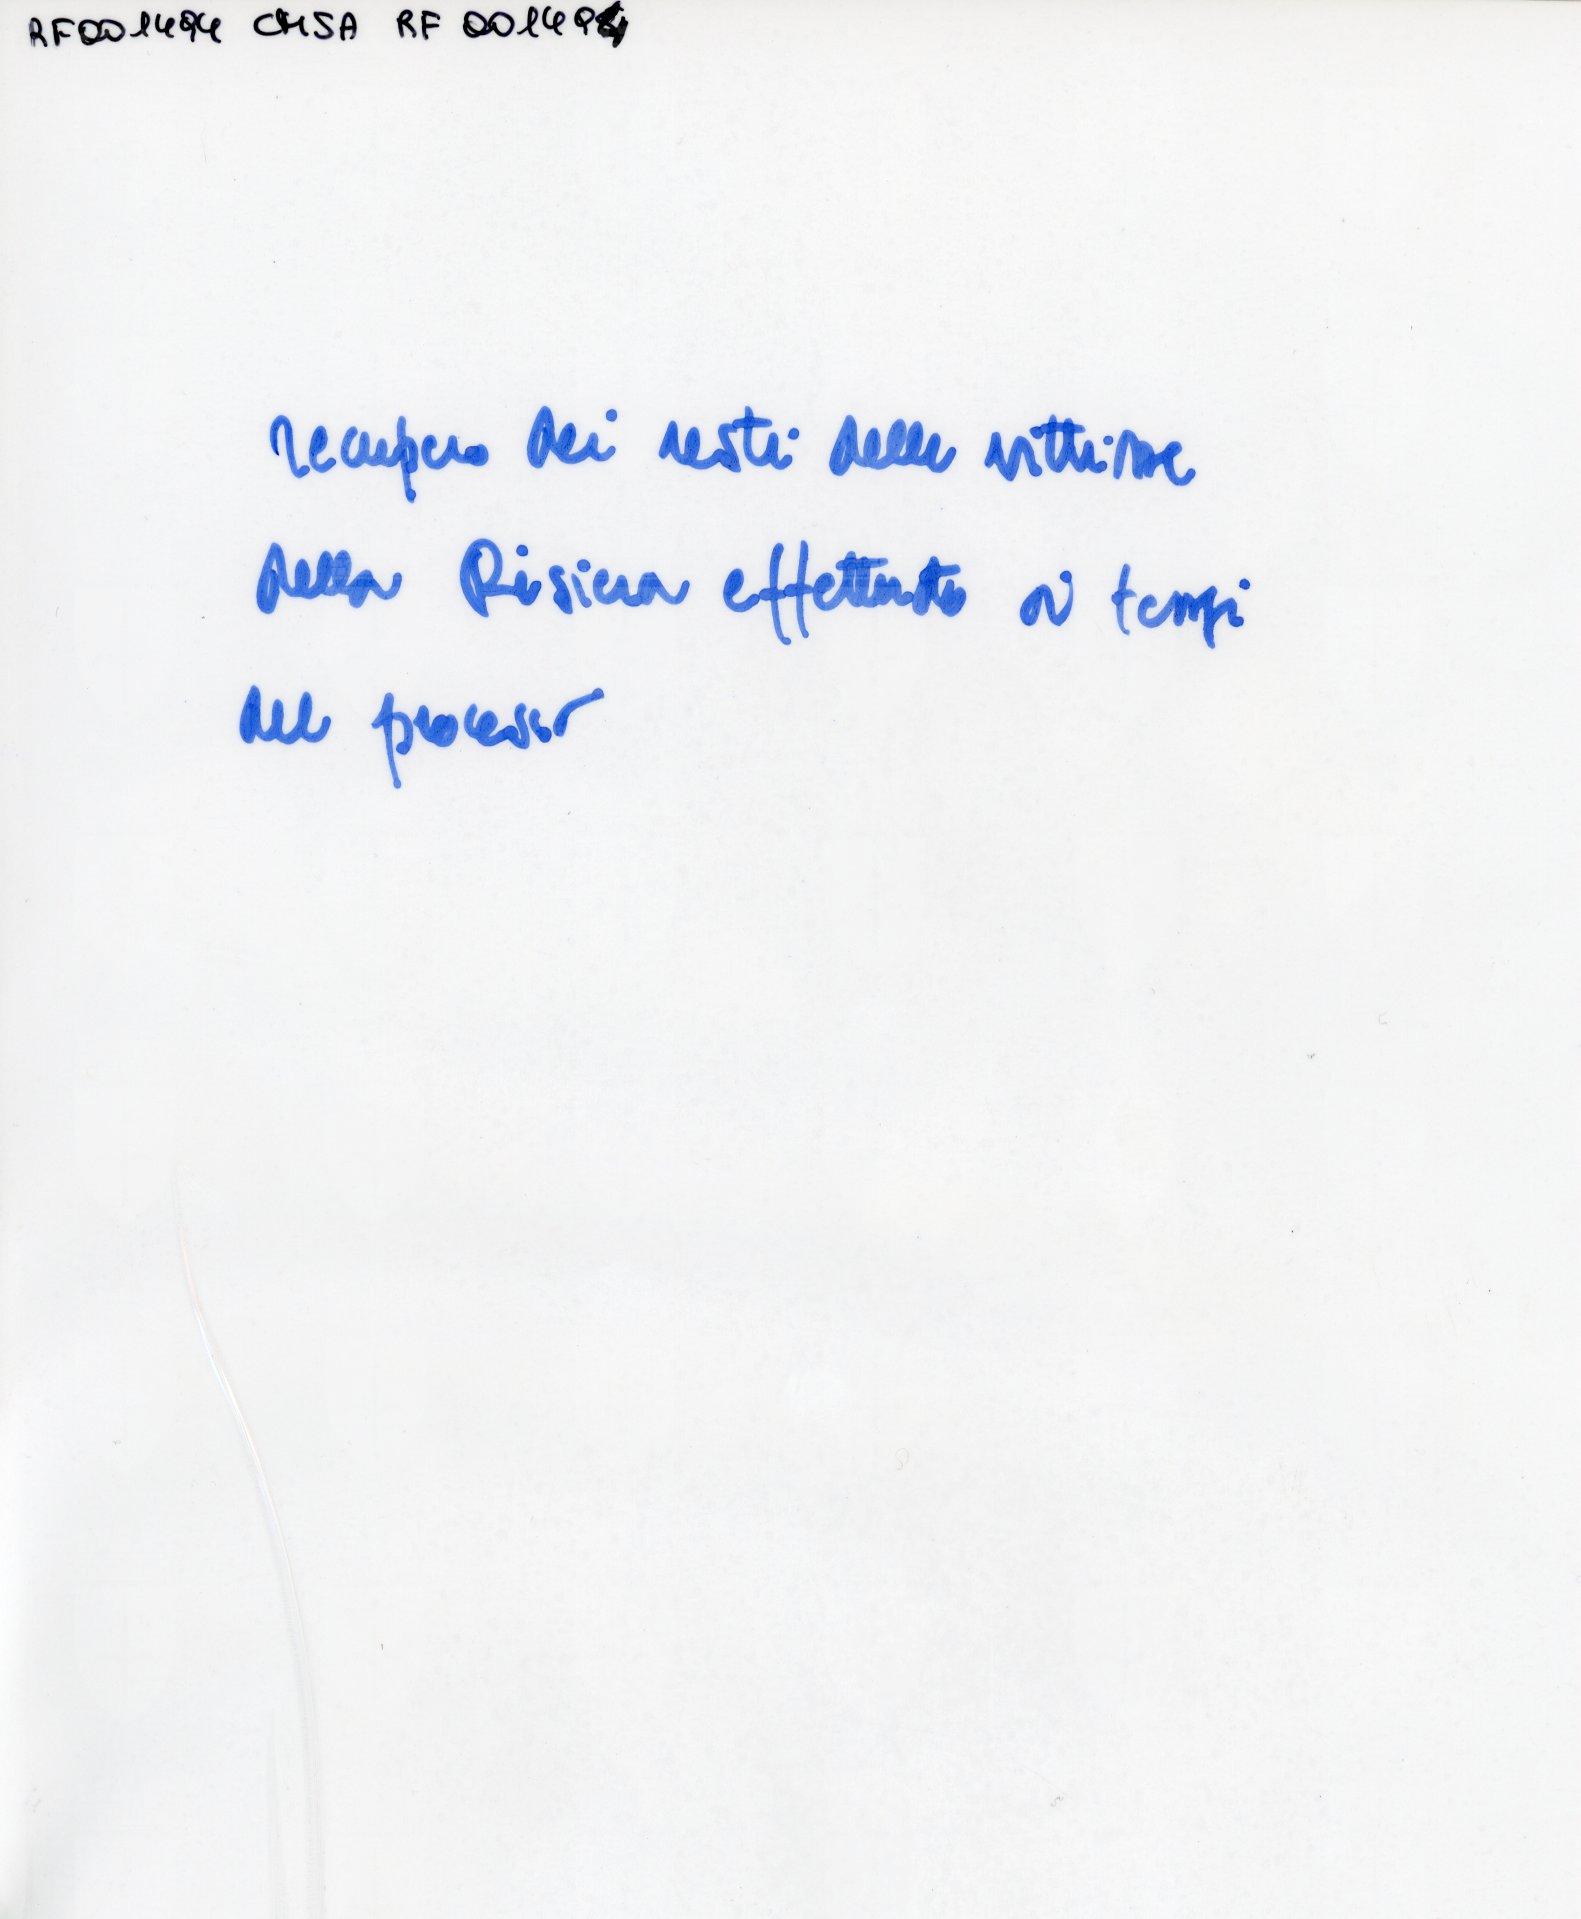 RF001494 CMSA RF 001494
recupero dei resti delle vittime
della Risiera effettuato ai tempi
del processo